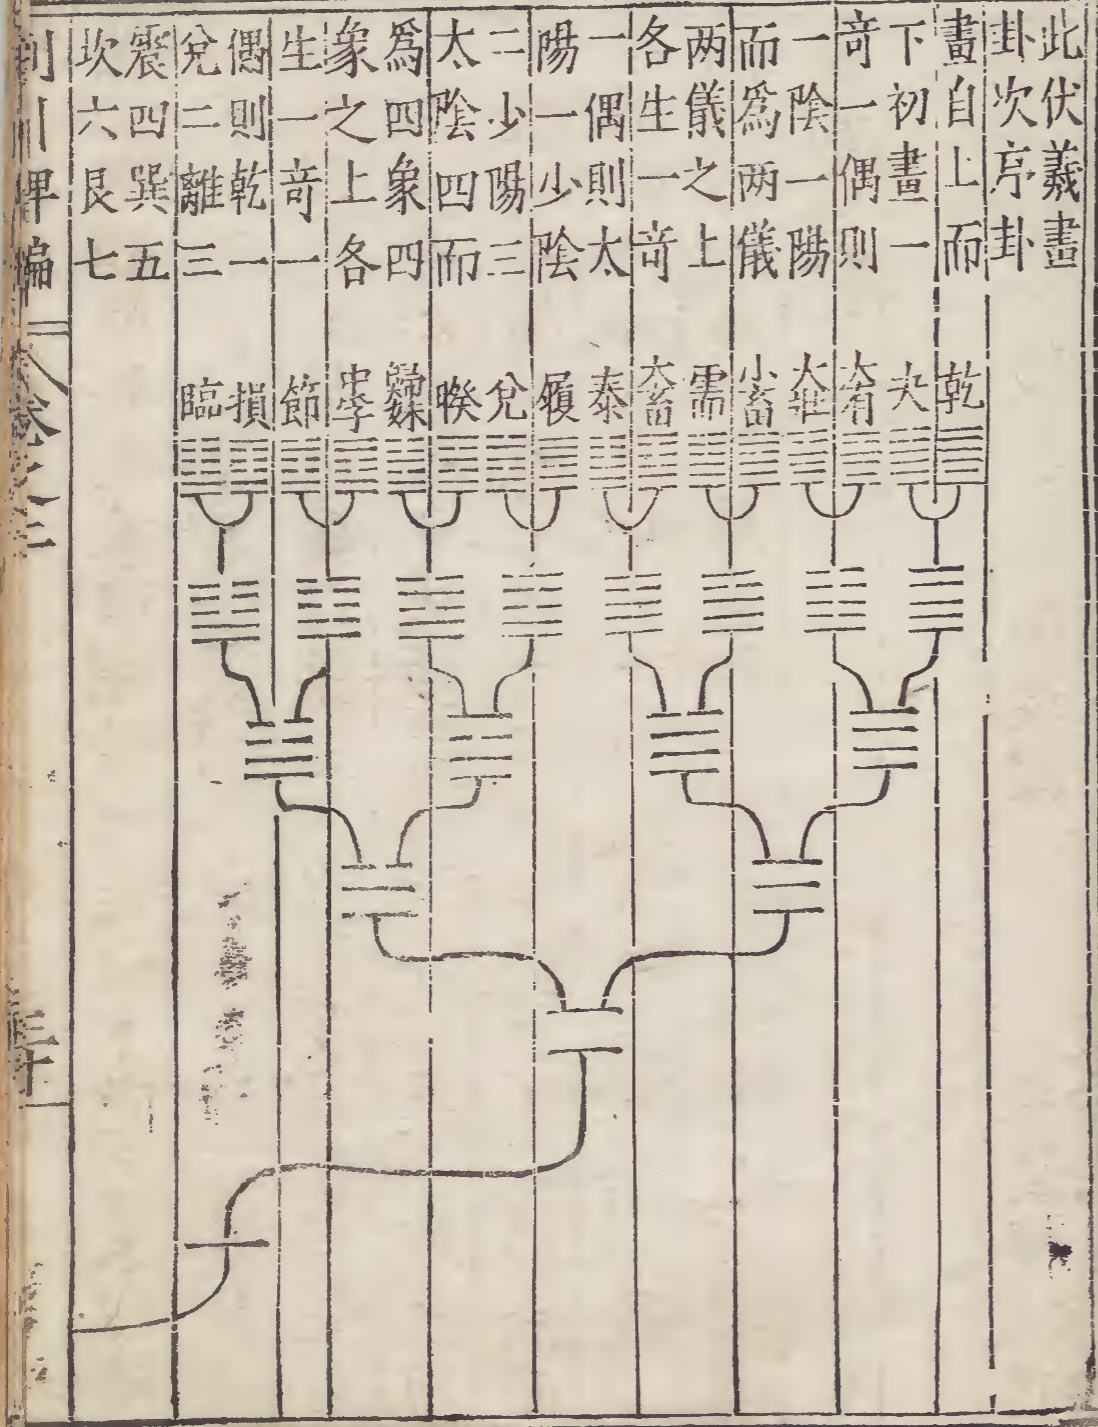 此伏羲畫
卦次序卦
畫自上而
下初畫一
竒一偶則
一陰一陽
而爲两儀
两儀之上
各生一竒
一偶則太
陽一少陰
二少陽三
太陰四而
爲四象四
象之上各
生一竒一
偶則乾一
兌二離三
震四巽五
坎六艮七
乾
夬
大有
大壯
小畜
需
大畜
泰
履
兌
睽
歸妹
中孚
節
損
臨
川稗編
卷之